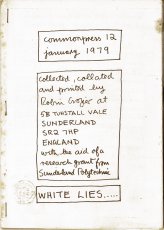 commonpress 12
january 1979
collected, collated
and printed by
Robin Crozier at
5B TUNSTALL VALE
SUNDERLAND
SR2 7HP
ENGLAND
with the aid of a
research grant from
Sunderland Polytechnic
WHITE LIES.....